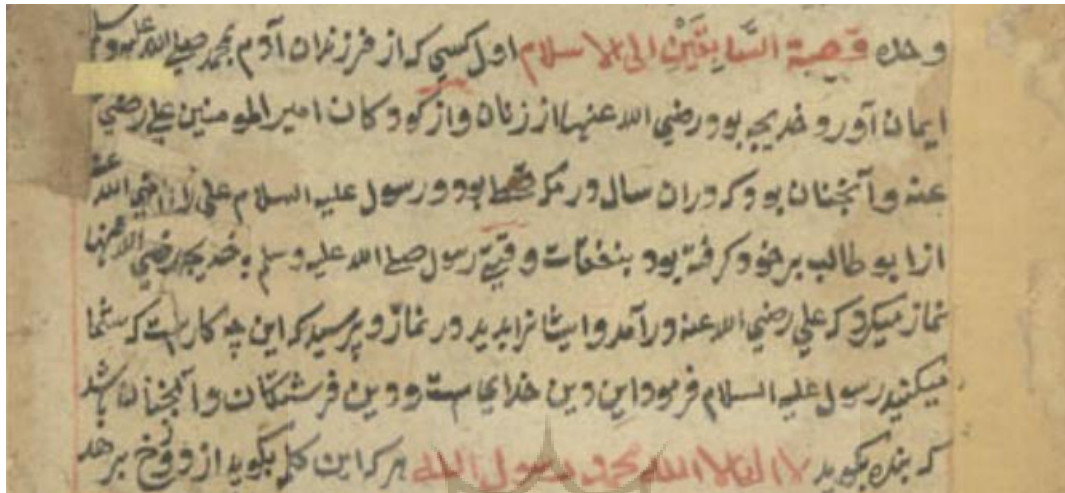 وحده قصة السَّابِقَيْنِ الی الاسلام اول کسی که از فرزندان آدم بمحمد صلی الله علیه وسلم
ایمان آورد خدیجه بود رضی الله عنها از زنان و از کودکان امیر المومنین علی رضی
عنه و آنچنان بود که دران سال در مکه قحط بود و رسول علیه السلام علی را رضی الله عنه
از ابو طالب برخود گرفته بود بنفقات وقتی رسول صلی الله علیه وسلم با خدیجه رضی الله عنها
نماز میکرد که علی رضی الله عنه درآمد و ایشانرا بدید در نماز و پرسید که این چه کارست که شما
میکنید رسول علیه السلام فرمود این دین خدایست و دین فرشتکان و آنچنان باشد
که بنده بکوید لا اله الا الله محمد رسول الله هر که این کلمه بکوید از دوزخ برهد